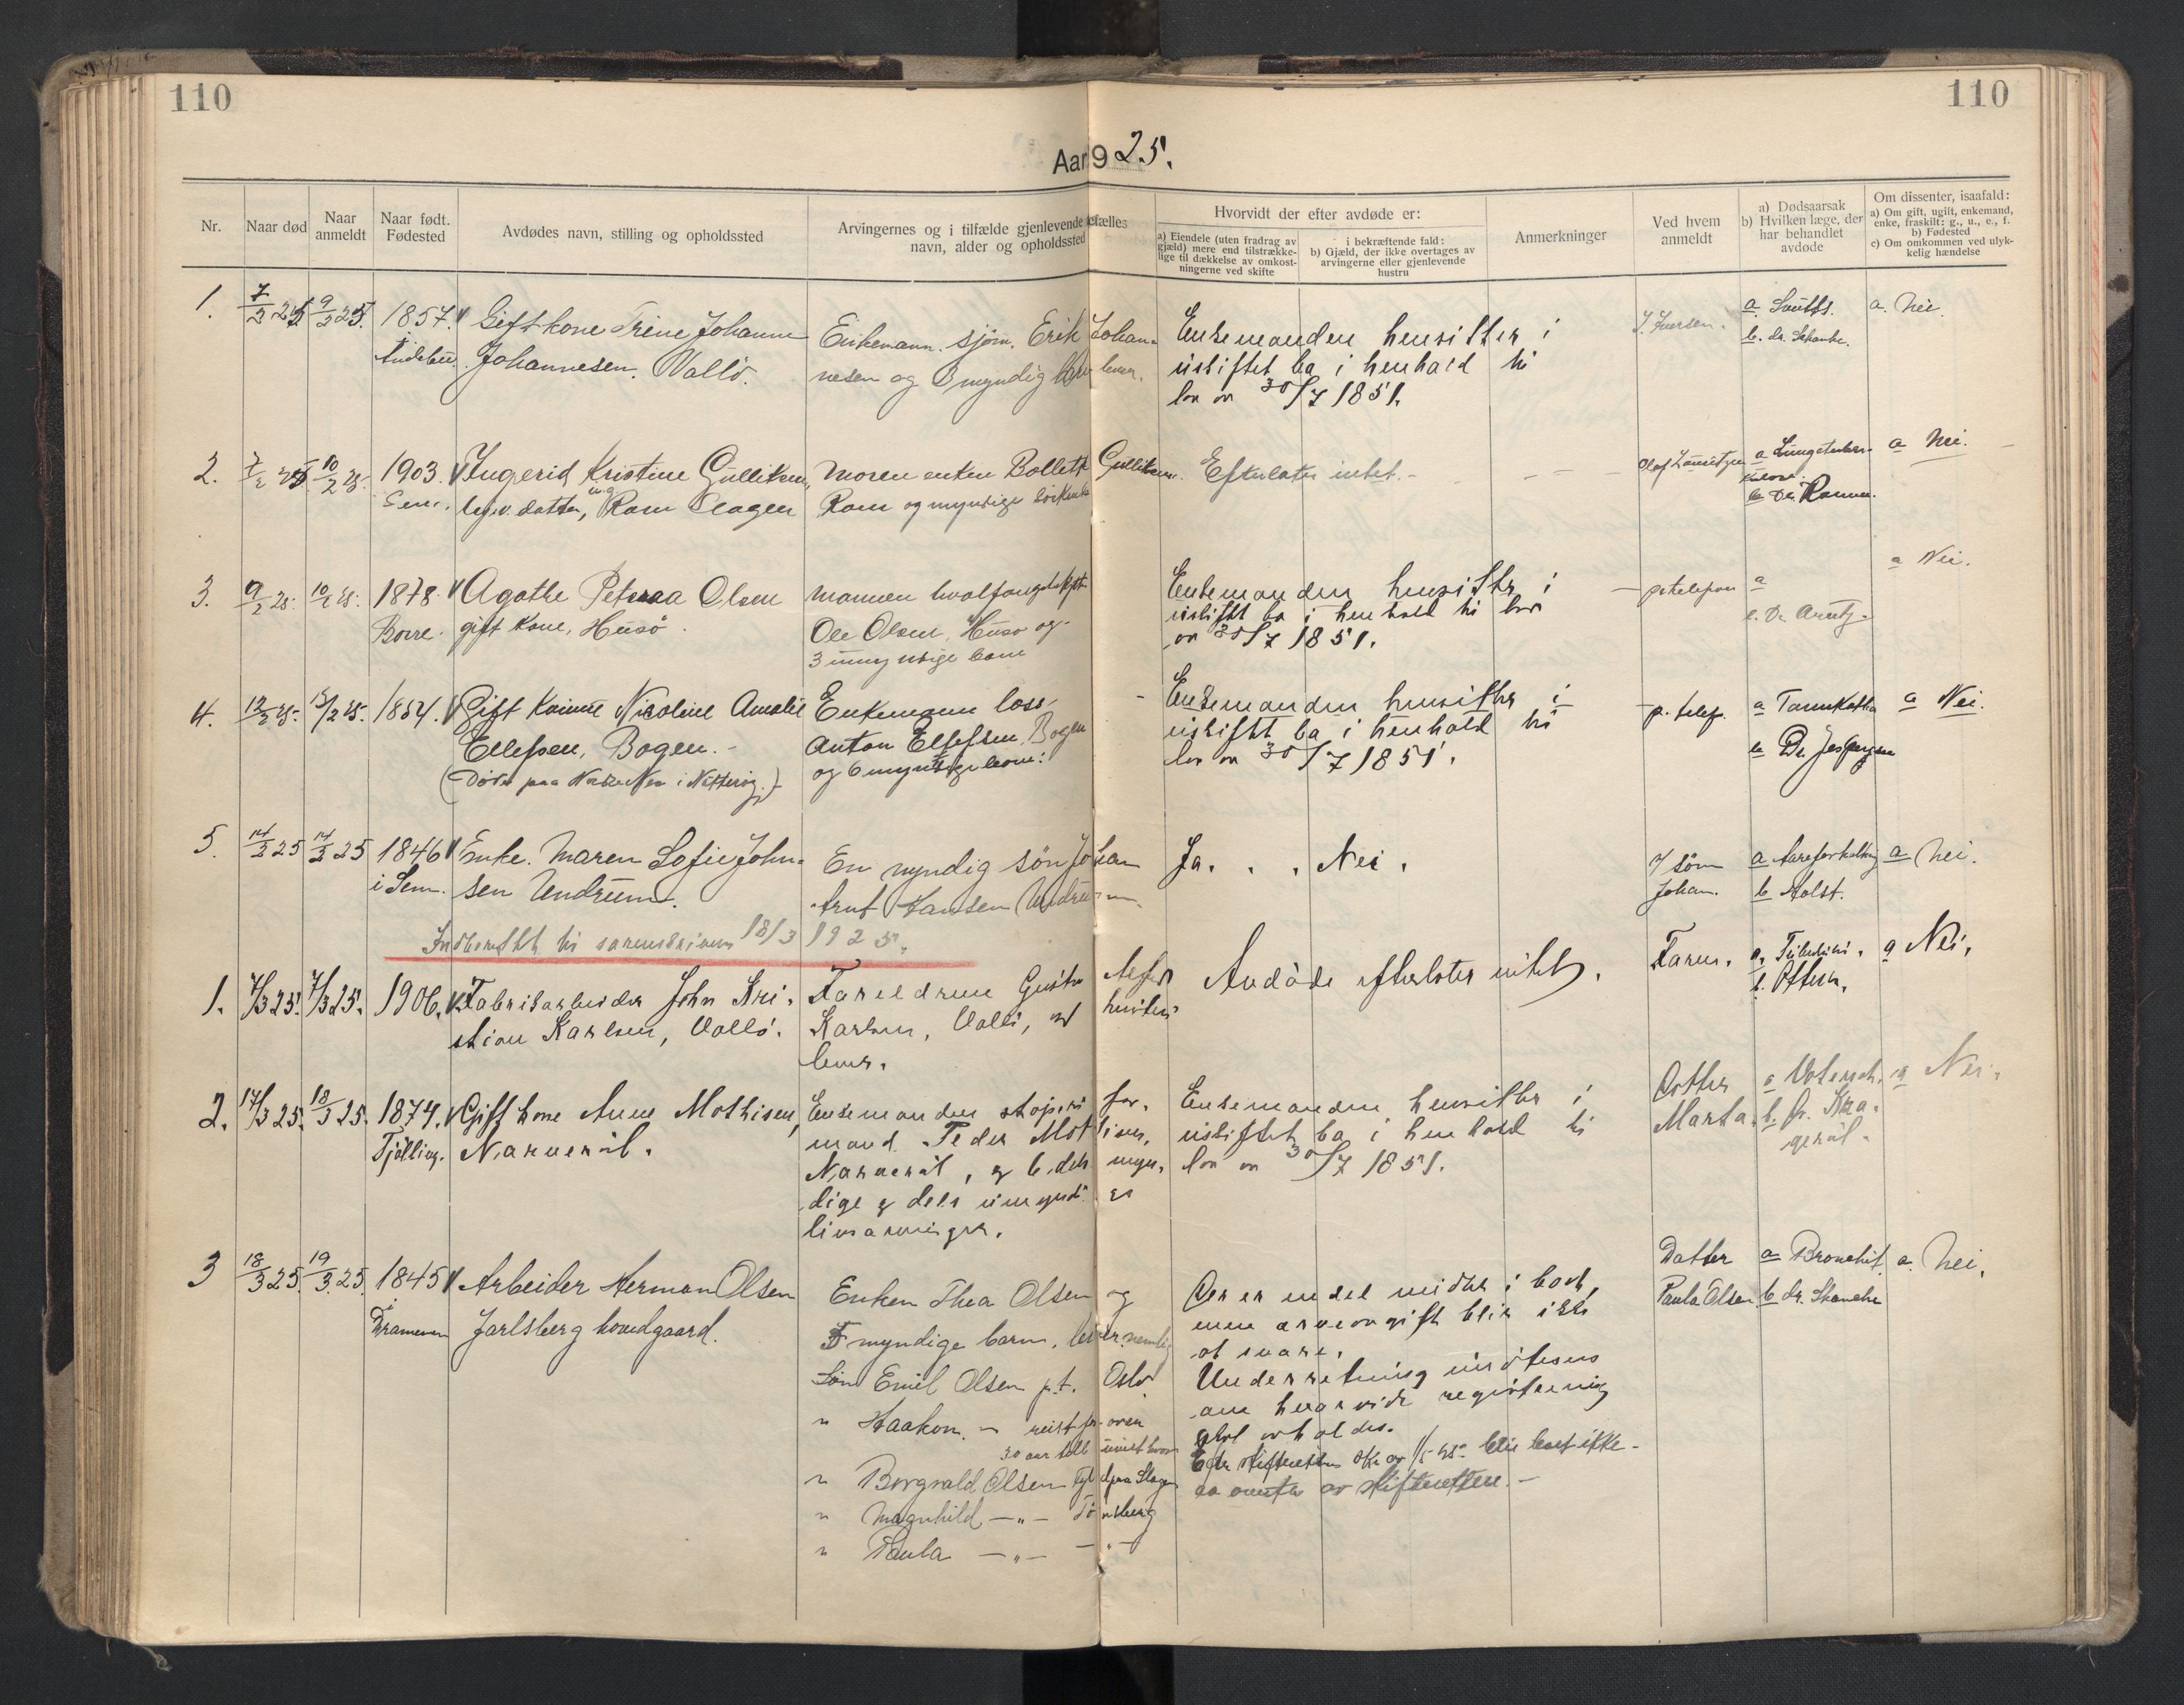 110
110
Aar 1925.
Nr.
Naar død
Naar anmeldt
Naar født. Fødested
Avdødes navn, stilling og opholdssted
Arvingernes og i tilfælde gjenlevende ektefælles
navn, alder og opholdssted
Hvorvidt der efter avdøde er:
a) Eiendele (uten fradrag av gjæld) mere end tilstrækkelige til dækkelse av omkostningerne ved skifte
i bekræftende fald:
b) Gjæld, der ikke overtages av arvingerne eller gjenlevende hustru
Anmerkninger
Ved hvem anmeldt
a) Dødsaarsak
b) Hvilken læge, der har behandlet avdøde
Om dissenter, isaafald:
a) Om gift, ugift, enkemand, enke, fraskilt: g., u., e., f.
b) Fødested
c) Om omkommen ved ulykkelig hændelse
1. 7/2 25. 9/2 25. 1857. Gift kone Trine Johanne
Andebu. Johannesen. Vallö.
Enkemann. sjöm. Erik Johan-
nesen og 3 myndig barn lever.
Enkemanden hensitter i
uskiftet bo i henhold til
lov av 30/7 1851.
J. Iversen.
b. dr. Schanke.
a. Nei.
2. 7/2 25. 10/2 25. 1903. Ingerid Kristine Gulliksen,
Sem. datter, Ram Slagen
Moren enken Bollette Gulliksen.
Ram og myndige
Efterlater intet. -
Olaf
a Lungetuber-
kulose.
b Dr.
a Nei.
3. 9/2 25. 10/2 25. 1878. Agathe Petrea Olsen
Borre. gift kone, Husö.
Mannen hvalfangstbest.
Ole Olsen, Husö og
3 umyndige barn
Enkemanden hensitter i
uskiftet bo i henhold til lov
av 30/7 1851.
pr telefon
a
b. Dr Arentz.
a Nei.
4. 12/2 25. 13/2 25. 1854. Gift kvinne Nicoline Amalie
Ellefsen, Bogen. -
(Döde paa i Nötteröy.)
Enkemann loss
Anton Ellefsen Bogen
og 6 myndige barn.
Enkemanden hensitter i
uskiftet bo i henhold til
lov av 30/7 1851.
p. telef.
a
b Dr. Jespersen
a Nei.
5. 14/2 25 14/2 25 1846 Enke. Maren Sofie John-
i Sem. sen Undrum.
En myndig sön Johan
Arnt Hansen Undrum.
Ja. . . Nei.
v/ sön
Johan.
a Aareforkalkning
b Holst.
a Nei.
Indberettet til sorenskriveren 18/3 1925.
1. 7/3 25. 7/3 25. 1906. Fabrikarbeider John Kri-
stian Karlsen, Vallö.
Foreldrene Gustav Adolf
Karlsen, Vallö, med hustru
lever.
Avdöde efterlater intet.
Faren.
a. Tuberkul.
b.
a Nei.
2. 17/3 25. 18/3 25. 1874. Gift kone Anne Mathisen,
Tjölling. Narveröd.
Enkemanden skoper. for-
mand Peder Mathisen,
Narverød, og 6, dels myn-
dige og dels umyndige
livsarvinger.
Enkemanden hensitter i
uskiftet bo i henhold til
lov av 30/7 1851.
Datter
Marta.
b. fr. Kra-
geröl.
a Nei.
3 18/3 25. 19/3 25. 1845 Arbeider Herman Olsen
Drammen Jarlsberg hovedgaard.
Enken Thea Olsen og
5 myndige barn, lever nemlig
Sön Emil Olsen p.t. Oslo.
" Haakon - " reist for over
30 aar uvist hvor
" Borgvald Olsen Slagen
" Magnhild - " - Tönsberg
" Paula - " - - " -
Der er endel midler i boet,
men arveavgift blir ikke
at svare.
Underretning imøtesees
om hvorvidt registrering
skal avholdes.
Efter skifterettens skr. av 1/5 25 blir boet ikke
av skifteretten. -
Datter
Paula Olsen
a Bronchit.
b dr. Schanche
a. Nei.